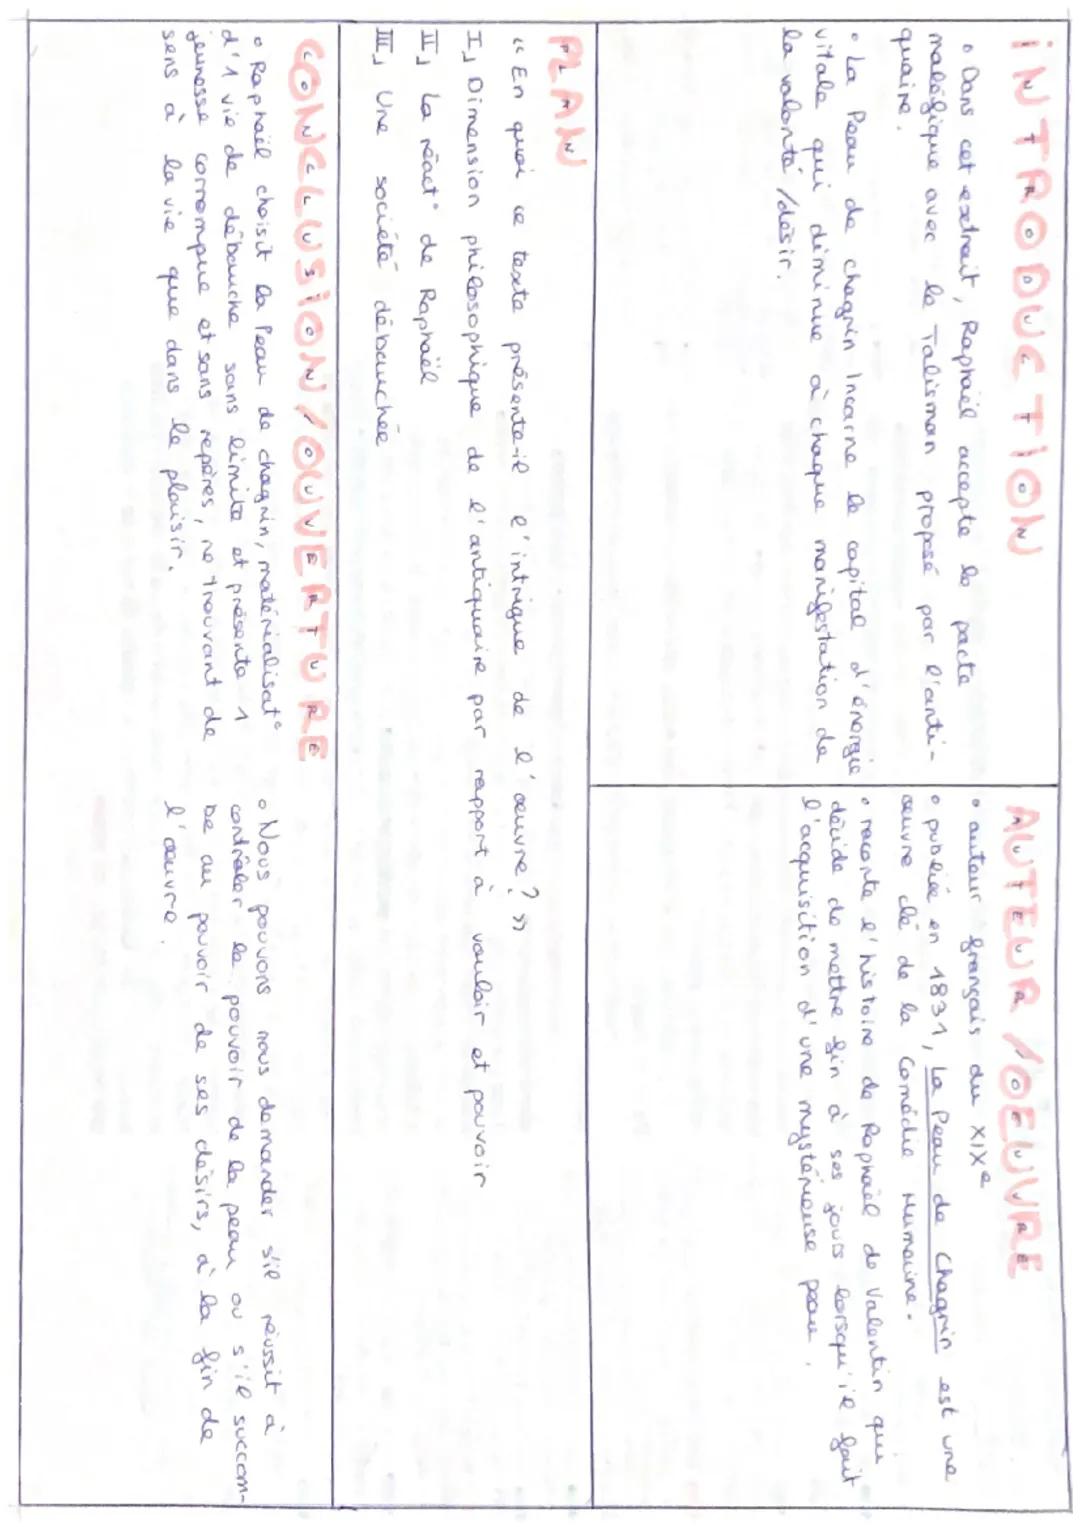 INTRODUCTION
• Dans cet extrait, Raphaël accepte le pacte
maléfique avec le Talisman proposé par l'anti-
quaire.
• La Peau de chagrin Incarne le capital d'énergie
vitale qui diminue à chaque manifestation de
la volonté/désir.
AUTEUR/OEUVRE
• auteur français du XIXe
• publiée en 1831, La Peau de Chagrin est une
œuvre clé de la Comédie Humaine.
• raconte l'histoire de Raphaël de Valentin qui
décide de mettre fin à ses jours lorsqu'il fait
l'acquisition d'une mystérieuse peau.
PLAN
"En quoi ce texte présente-il l'intrigue de l'œuvre?"
I, Dimension philosophique de l'antiquaire par rapport à vouloir et pouvoir
II, La réact° de Raphaël
III, Une société débauchée
CONCLUSION/OUVERTURE
• Raphaël choisit la Peau de chagrin, matérialisat°
d'1 vie de débauche sans limite et présente 1
jeunesse corrompue et sans repères, ne trouvant de
sens à la vie que dans le plaisir.
• Nous pouvons nous demander s'il réussit à
contrôler le pouvoir de la peau ou s'il succom-
be au pouvoir de ses désirs, à la fin de
l'œuvre.